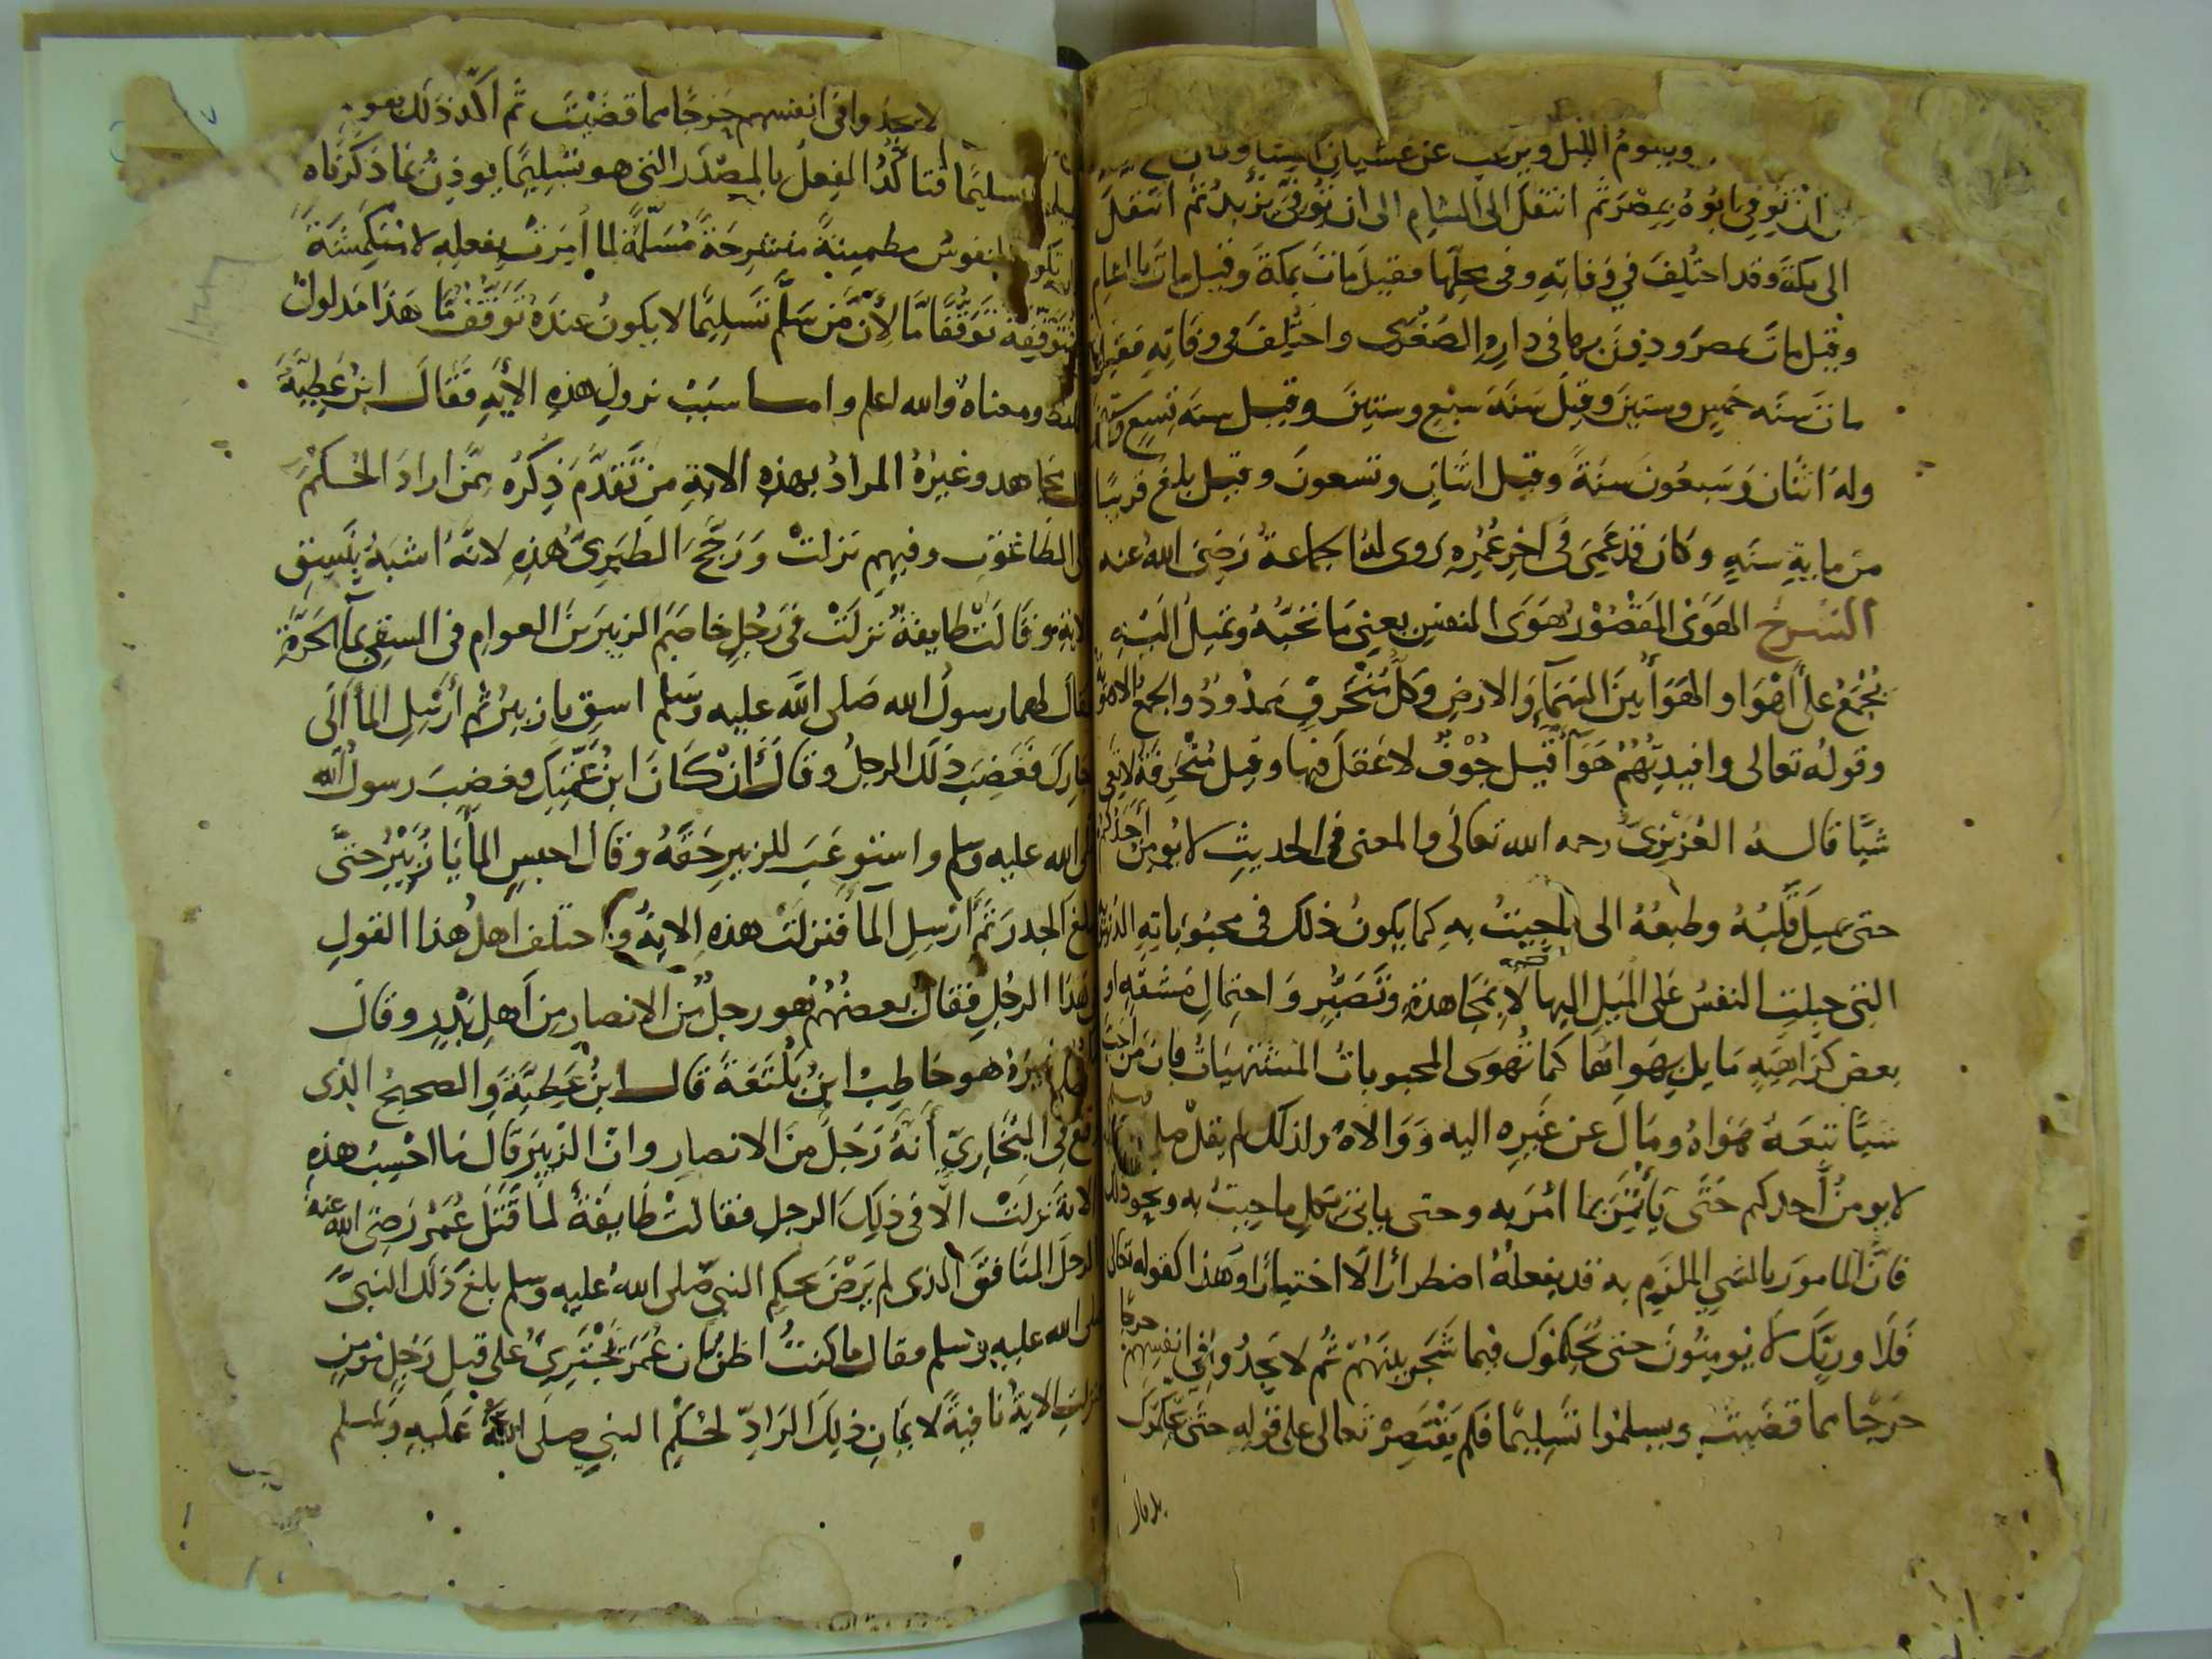 ويقوم الليل ويرغب عن غشيان النساء وكان
ان توفي ابوه بمصر ثم انتقل الى الشام الى ان توفي يزيد ثم انتقل
الى مكة وقد اختلف في وفاته وفي محلها فقيل مات بمكة وقيل مات بالشام
وقيل مات بمصر ودفن بها في داره الصغرى واختلف في وفاته فقيل
مات سنه خمس وستين وقيل سنة سبع وستين وقيل سنة تسع وستين
وله اثنان وسبعون سنة وقيل اثنان وتسعون وقيل بلغ قريبا
من ماية سنه وكان قد عمي في اخر عمره روى له الجماعة رضي الله عنه
الشرح الهوى المقصور هوى النفس يعني ما تحبه وتميل اليه
يجمع على اهوا والهوا بين السماء والارض وكل منخرق ممدود والجمع الاهوية
وقوله تعالى وافيدتهم هوآ قيل جوف لا عقل فيها وقيل منخرقة لا تعي
شيا قاله العزيزي رحمه الله تعالى والمعنى في الحديث لا يومن احدكم
حتى يميل قلبه وطبعه الى ما جيت به كما يكون ذلك في محبوباته الدنيوية
التي جبلت النفس على الميل اليها لا بمجاهدة وتصبر واحتمال مشقه او
بعض كراهية ما بل يهواها كما تهوى المحبوبات المشتهيات فان من احب
شيا تبعه هواه ومال عن غيره اليه ووالاه ولذلك لم يقل صلى
لا يومن احدكم حتى ياتمر بما امر به وحتى ياتي بكل ما جيت به ونحو ذلك
فان المامور بالشي الملزم به قد يفعله اضطرارا لا اختيارا وهذا كقوله تعالى
فلا وربك لا يومنون حتى يحكموك فيما شجر بينهم ثم لا يجدوا في انفسهم حرجا
حرجا مما قضيت ويسلموا تسليما فلم يقتصر تعالى على قوله حتى يحكموك
لا يجدوا في انفسهم حرجا مما قضيت ثم اكد ذلك بقوله
تسليما فتاكد الفعل بالمصدر الذي هو تسليما يوذن بما ذكرناه
النفوس مطمينة منشرحة مسلمة لما امرت بفعله لا منكمشة
متوقفة توقفا ما لان من سلم تسليما لا يكون عنده توقف ما هذا مدلول
ومعناه والله اعلم واما سبب نزول هذه الايه فقال ابن عطية
مجاهد وغيره المراد بهذه الاية من تقدم ذكره ممن اراد الحكم
الطاغوت وفيهم نزلت ورجح الطبري هذه لانه اشبه بنسق
الاية وقالت طايفة نزلت في رجل خاصم الزبير بن العوام في السقي بما الحرة
فقال لهما رسول الله صلى الله عليه وسلم اسق يا زبير ثم ارسل الما الى
جارك فغضب ذلك الرجل وقال ان كان ابن عمتك فغضب رسول الله
صلى الله عليه وسلم واستوعب للزبير حقه وقال احبس الما يا زبير حتى
يبلغ الجدر ثم ارسل الما فنزلت هذه الاية واختلف اهل هذا القول
هذا الرجل فقال بعضهم هو رجل من الانصار من اهل بدر وقال
غيره هو حاطب ابن بلتعة قال ابن عطية والصحيح الذي
وقع في البخاري انه رجل من الانصار وان الزبير قال ما احسب هذه
الاية نزلت الا في ذلك الرجل فقالت طايفة لما قتل عمر رضي الله عنه
الرجل المنافق الذي لم يرض بحكم النبي صلى الله عليه وسلم بلغ ذلك النبي
صلى الله عليه وسلم فقال ما كنت اظن ان عمر يجتري على قتل رجل مومن
نزلت الاية نافية لايمان ذلك الراد لحكم النبي صلى الله عليه وسلم